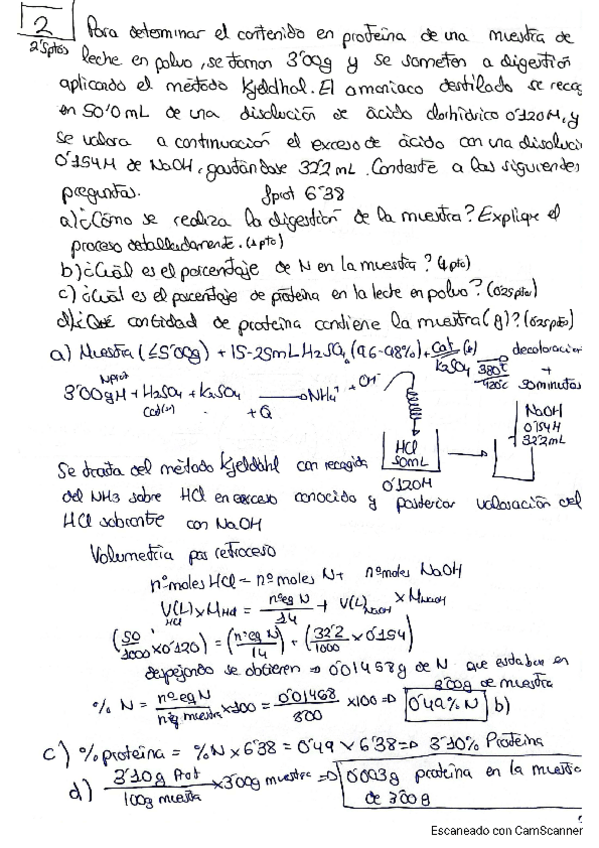 2
2'5ptos
Para determinar el contenido en proteína de una muestra de
leche en polvo, se toman 3'00g y se someten a digestión
aplicando el método Kjeldhal. El amoniaco destilado se recog
en 50'0 mL de una disolución de ácido clorhídrico 0'120M, y
se valora a continuación el exceso de ácido con una disoluci
0'154M de NaOH, gastándose 32'2 mL. Conteste a las siguientes
preguntas. fprot 6'38
a) ¿Cómo se realiza la digestión de la muestra? Explique el
proceso detalladamente. (1pto)
b) ¿Cuál es el porcentaje de N en la muestra? (1pto)
c) ¿Cuál es el porcentaje de proteína en la leche en polvo? (0'25pto)
d) ¿Qué cantidad de proteína contiene la muestra (g)? (0'25pto)
a) Muestra (≤5'00g) + 15-25mL H2SO4 (96-98%) + Cat K2SO4 380°C 420°C decoloración
+
Nprot 50minutos
3'00gM + H2SO4 + K2SO4 → NH4+ + OH-
+ Q
NaOH
0'154M
32'2mL
HCl
50mL
0'120M
Se trata del método Kjeldahl con recogida
del NH3 sobre HCl en exceso conocido y posterior valoración del
HCl sobrante con NaOH
Volumetría por retroceso
nºmoles HCl = nºmoles N + nºmoles NaOH
V(L)HCl x MHCl = nºeg N / 14 + V(L)NaOH x MNaOH
(50/1000 x 0'120) = (nºeg N / 14) + (32'2/1000 x 0'154)
despejando se obtienen ⇒ 0'01468g de N que estaban en
3'00g de muestra
% N = nºeg N / nºg muestra x 100 = 0'01468 / 3'00 x 100 ⇒ 0'49% N b)
c) % proteína = %N x 6'38 = 0'49 x 6'38 ⇒ 3'10% Proteína
d) 3'10g Prot / 100g muestra x 3'00g muestra ⇒ 0'093g proteína en la muestra
de 3'00g
Escaneado con CamScanner